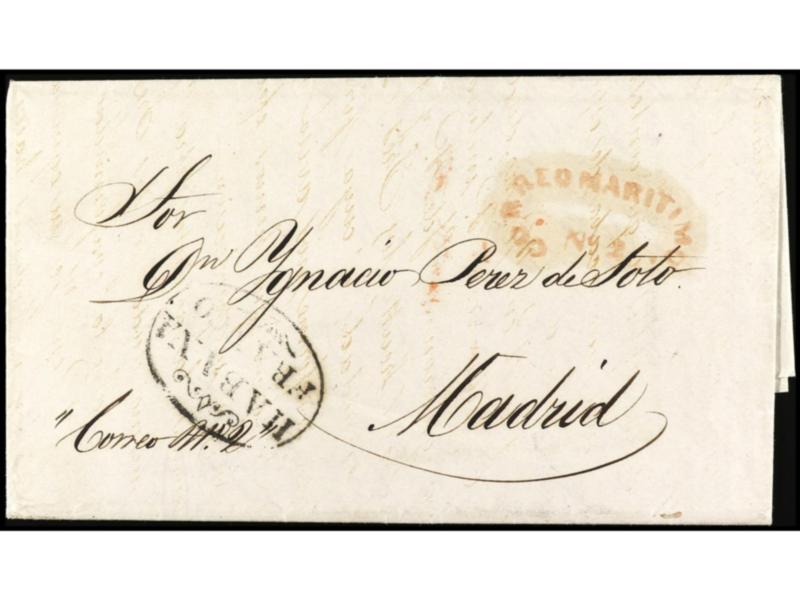 CORREO MARITIMO
Nº 2
Sor
Dn Ygnacio Perez de Soto.
HABANA
FRANCO
Madrid
"Correo Nº. 2"